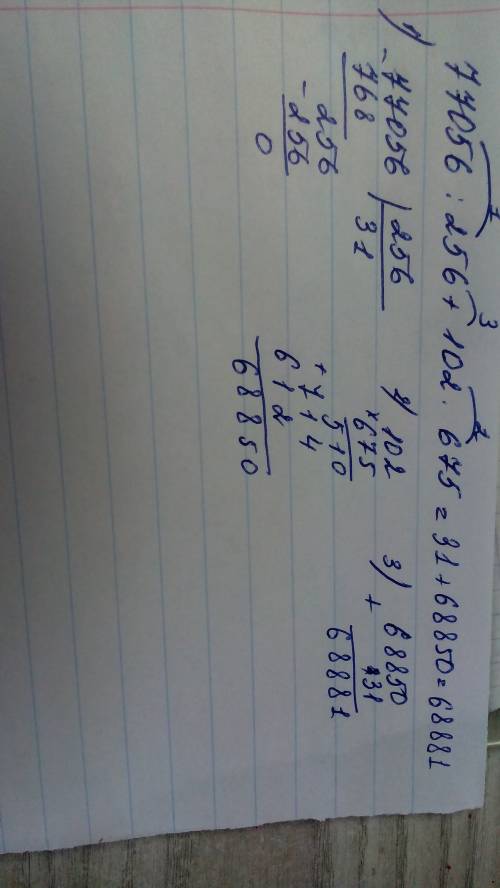 1 3 2
77056 : 256 + 102 · 675 = 31 + 68850 = 68881
1) -77056 | 256
768 31
256
-256
0
2) 102
×675
510
+714
612
68850
3) 68850
+ 31
68881